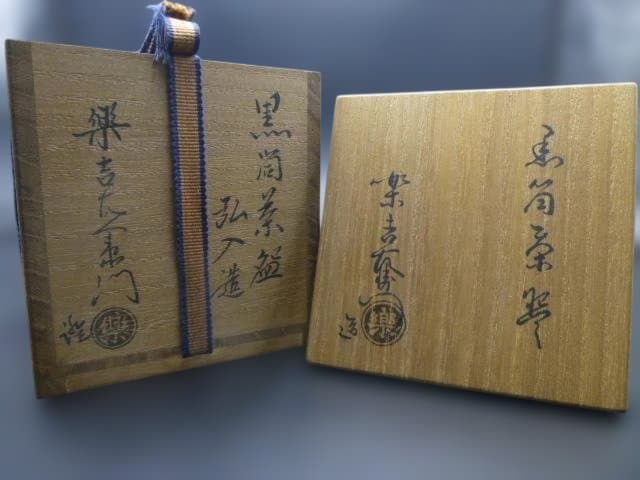 黒筒茶盌
弘入造
樂吉左衛門
證
樂
黒筒茶盌
樂吉左衛門
造
樂